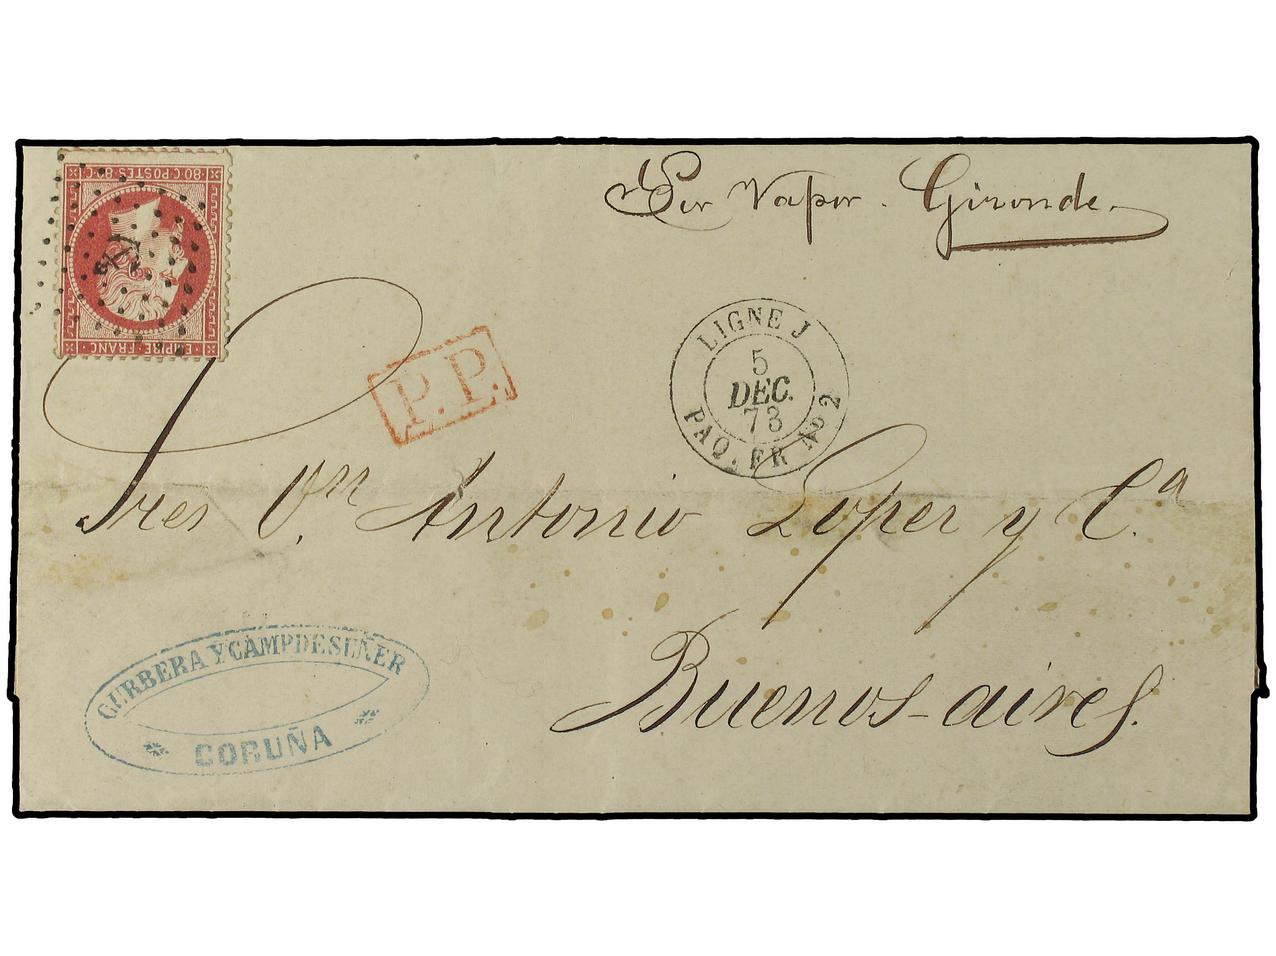 Per Vapor. Gironde.
80 C POSTES 80 C
EMPIRE FRANC
P.P.
LIGNE J
5
DEC.
73
PAQ. FR No 2
Sres Vn. Antonio Lopez y Ca.
Buenos-aires.
GURBERA Y CAMPDESUÑER
CORUÑA